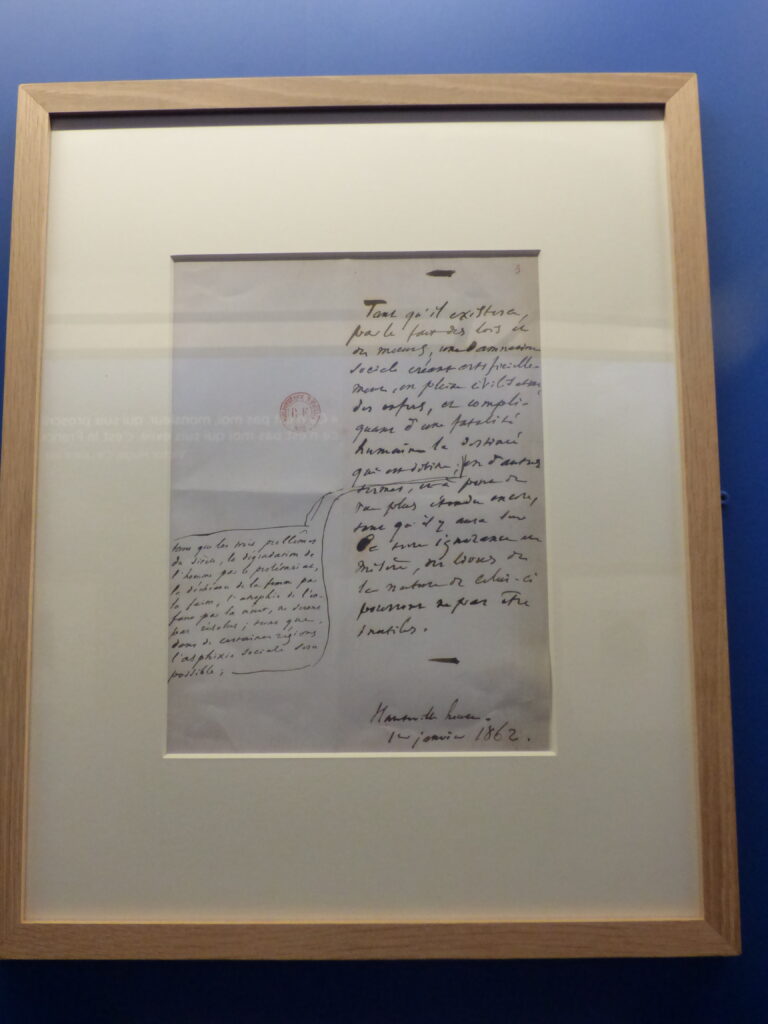 3
Tant qu'il existera,
par le fait des lois et
des mœurs, une damnation
sociale créant artificielle-
ment, en pleine civilisation,
des enfers, et compli-
quant d'une fatalité
humaine la destinée
qui est divine; en d'autres
termes, et à point de
vue plus étendu encore,
tant qu'il y aura sur
la terre ignorance et
misère, des livres de
la nature de celui-ci
pourront ne pas être
inutiles.
tant que les trois problèmes
du siècle, la dégradation de
l'homme par le prolétariat,
la déchéance de la femme par
la faim, l'atrophie de l'en-
fant par la nuit, ne seront
pas résolus; tant que,
dans de certaines régions,
l'asphyxie sociale sera
possible;
Hauteville house.
1er janvier 1862.
pas moi, monsieur, qui suis proscrit
ce n'est pas moi qui suis